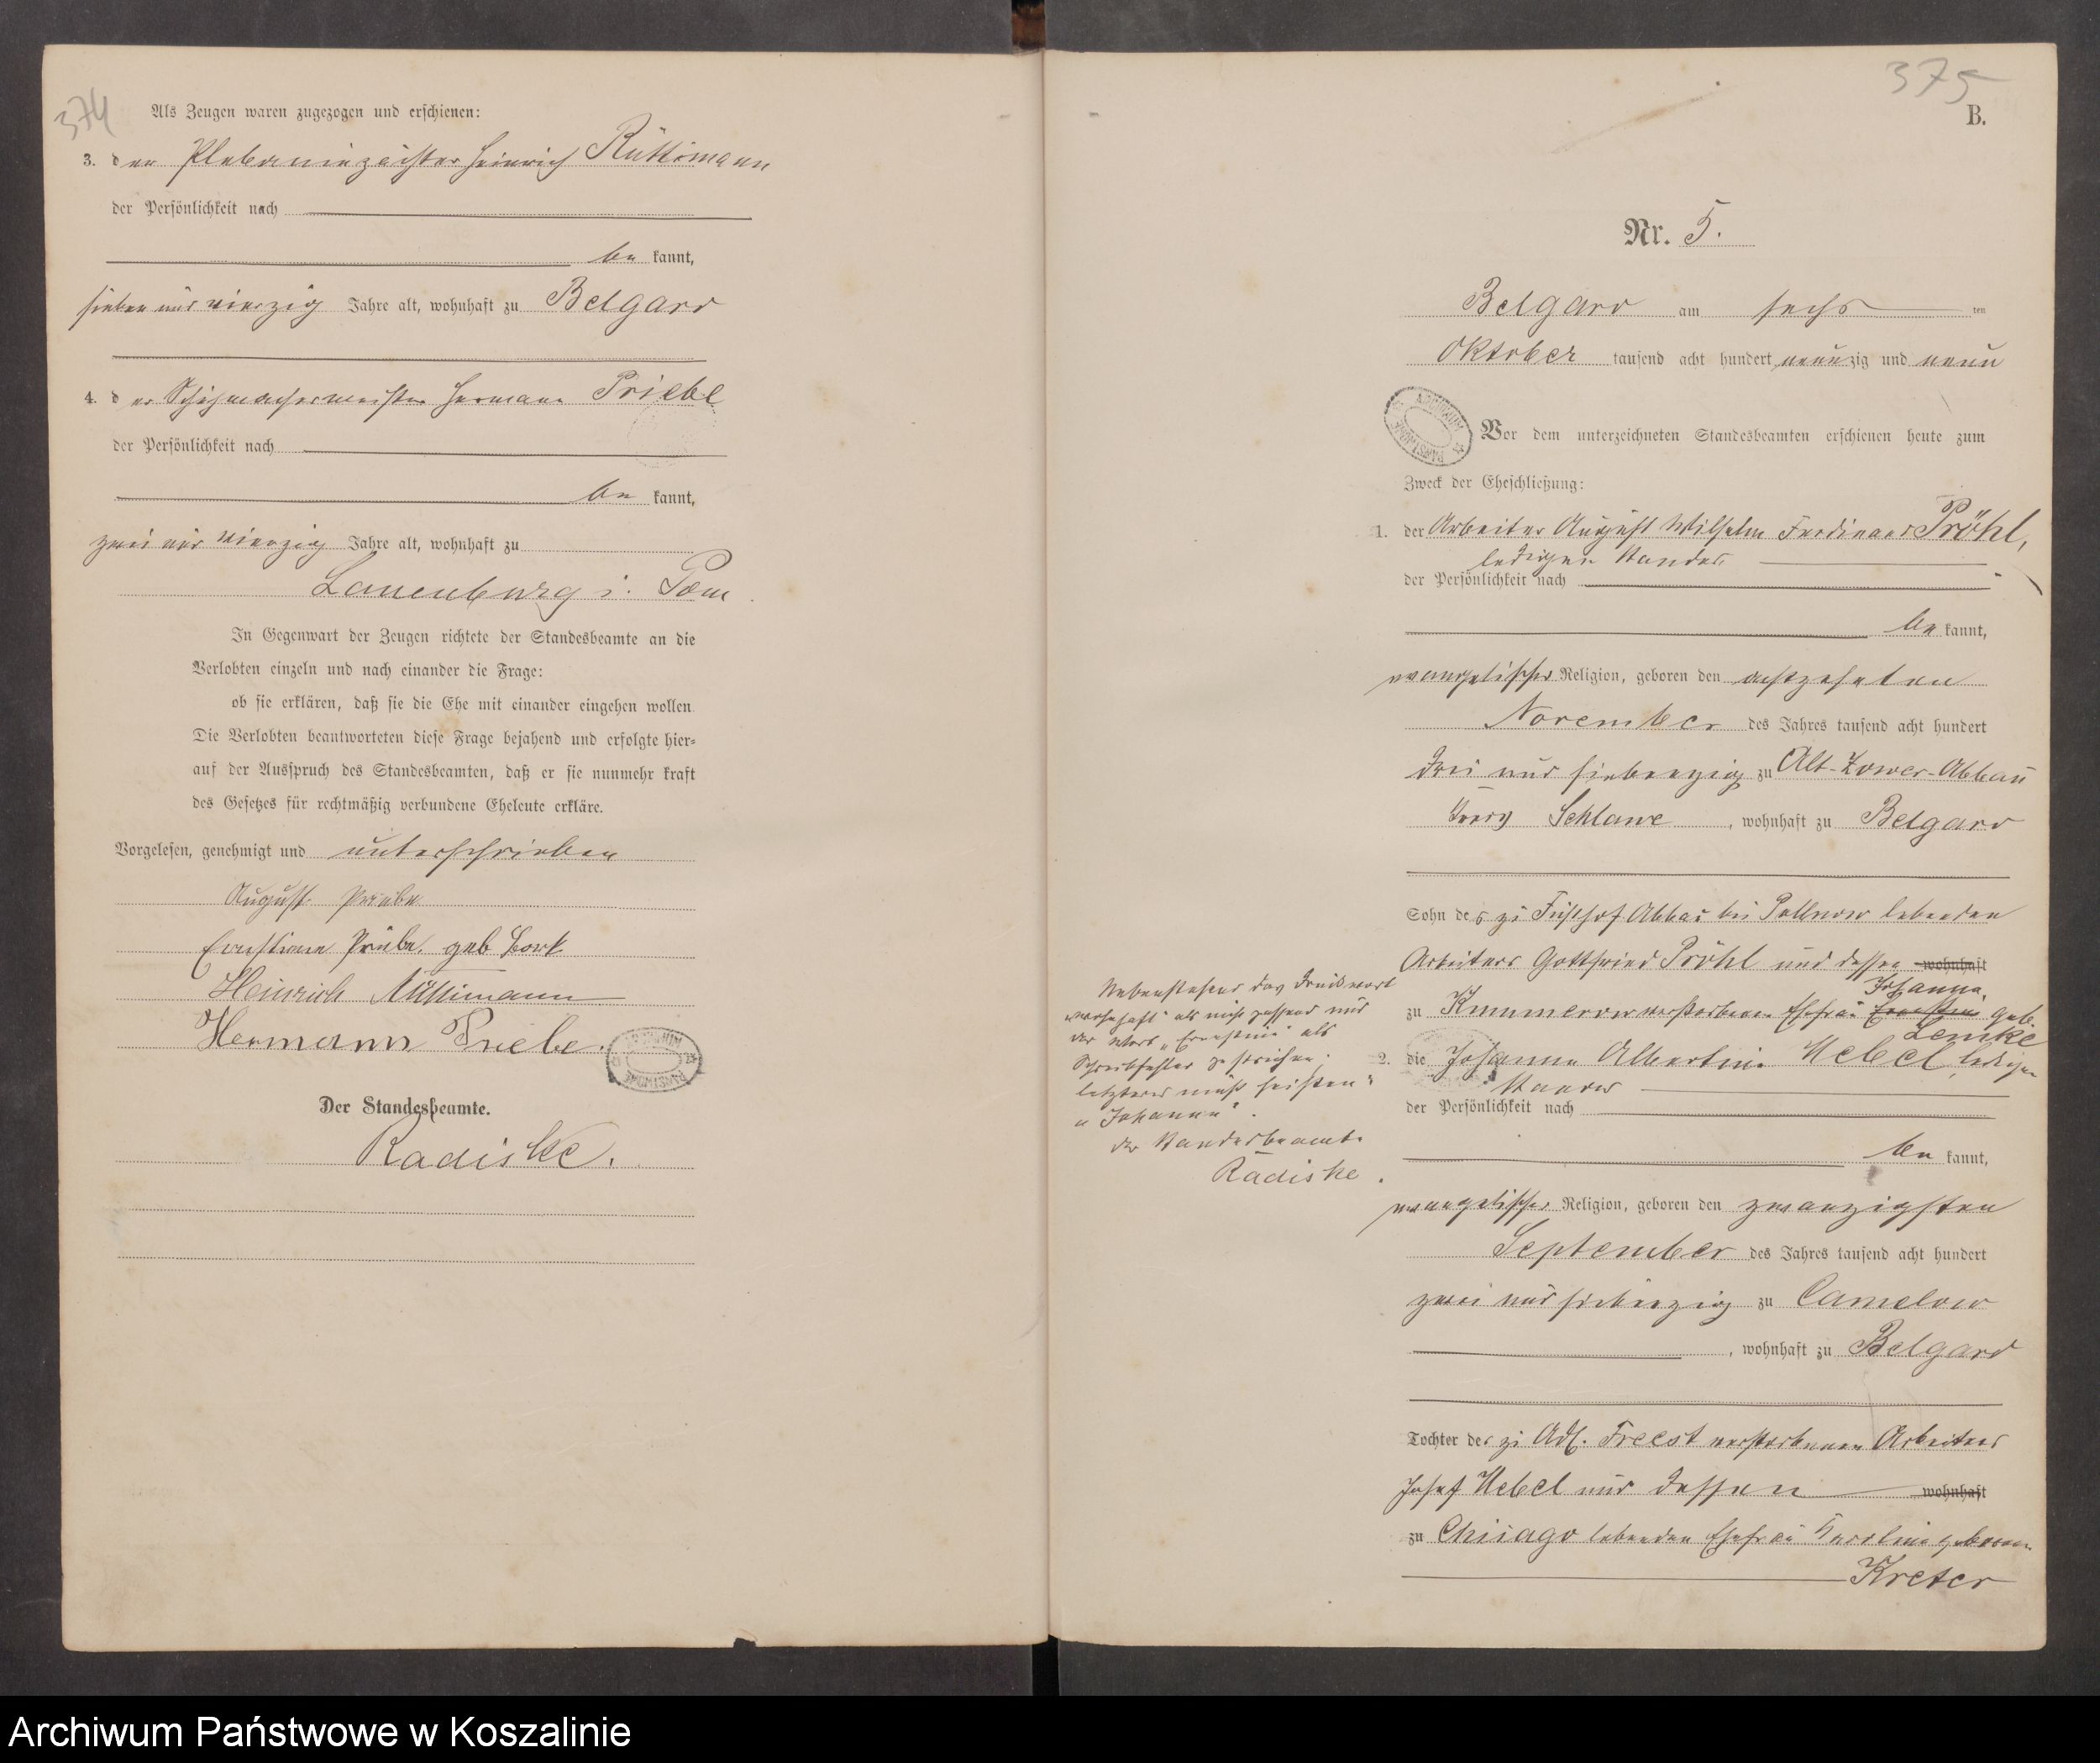 374
Als Zeugen waren zugezogen und erschienen:
3. der Heinrich Rüttimann
der Persönlichkeit nach
be kannt,
sieben und vierzig Jahre alt, wohnhaft zu Belgard
4. der Schuhmachermeister Hermann Priebe
der Persönlichkeit nach
be kannt,
zwei und vierzig Jahre alt, wohnhaft zu
Lauenburg i. Pom
In Gegenwart der Zeugen richtete der Standesbeamte an die
Verlobten einzeln und nach einander die Frage:
ob sie erklären, daß sie die Ehe mit einander eingehen wollen.
Die Verlobten beantworteten diese Frage bejahend und erfolgte hier-
auf der Ausspruch des Standesbeamten, daß er sie nunmehr kraft
des Gesetzes für rechtmäßig verbundene Eheleute erkläre.
Vorgelesen, genehmigt und unterschrieben
August Priebe
Ernstine Priebe, geb Bork
Heinrich Rüttimann
Hermann Priebe.
Der Standesbeamte.
Radiske.
375
B.
Nr. 5.
Belgard am sechs ten
Oktober tausend acht hundert neunzig und neun
Vor dem unterzeichneten Standesbeamten erschienen heute zum
Zweck der Eheschließung:
1. der Arbeiter August Wilhelm Ferdinand Pröhl,
ledigen Standes
der Persönlichkeit nach
be kannt,
evangelischer Religion, geboren den achtzehnten
November des Jahres tausend acht hundert
drei und siebenzig zu Alt-Zower-Abbau
Kreis Schlawe, wohnhaft zu Belgard
Sohn des zu Abbau bei Pollnow lebenden
Arbeiters Gottfried Pröhl und dessen wohnhaft
Johanna,
zu Kummerow verstorbenen Ehefrau Ernstine geb.
Lemke
2. die Johanna Albertine Uebel, ledigen
Standes
der Persönlichkeit nach
be kannt,
evangelischer Religion, geboren den zwanzigsten
September des Jahres tausend acht hundert
zwei und siebenzig zu Camelow
, wohnhaft zu Belgard
Tochter des zu Adl. Freest verstorbenen Arbeiters
Josef Uebel und dessen wohnhaft
zu Chicago lebenden Ehefrau Karoline geborenen
Kreter
Nebenstehend das Druckwort
"wohnhaft" als nicht passend und
das Wort "Ernstine" als
Schreibfehler gestrichen;
letzteres muß heißen:
"Johanna".
Der Standesbeamte
Radiske.
Archiwum Państwowe w Koszalinie